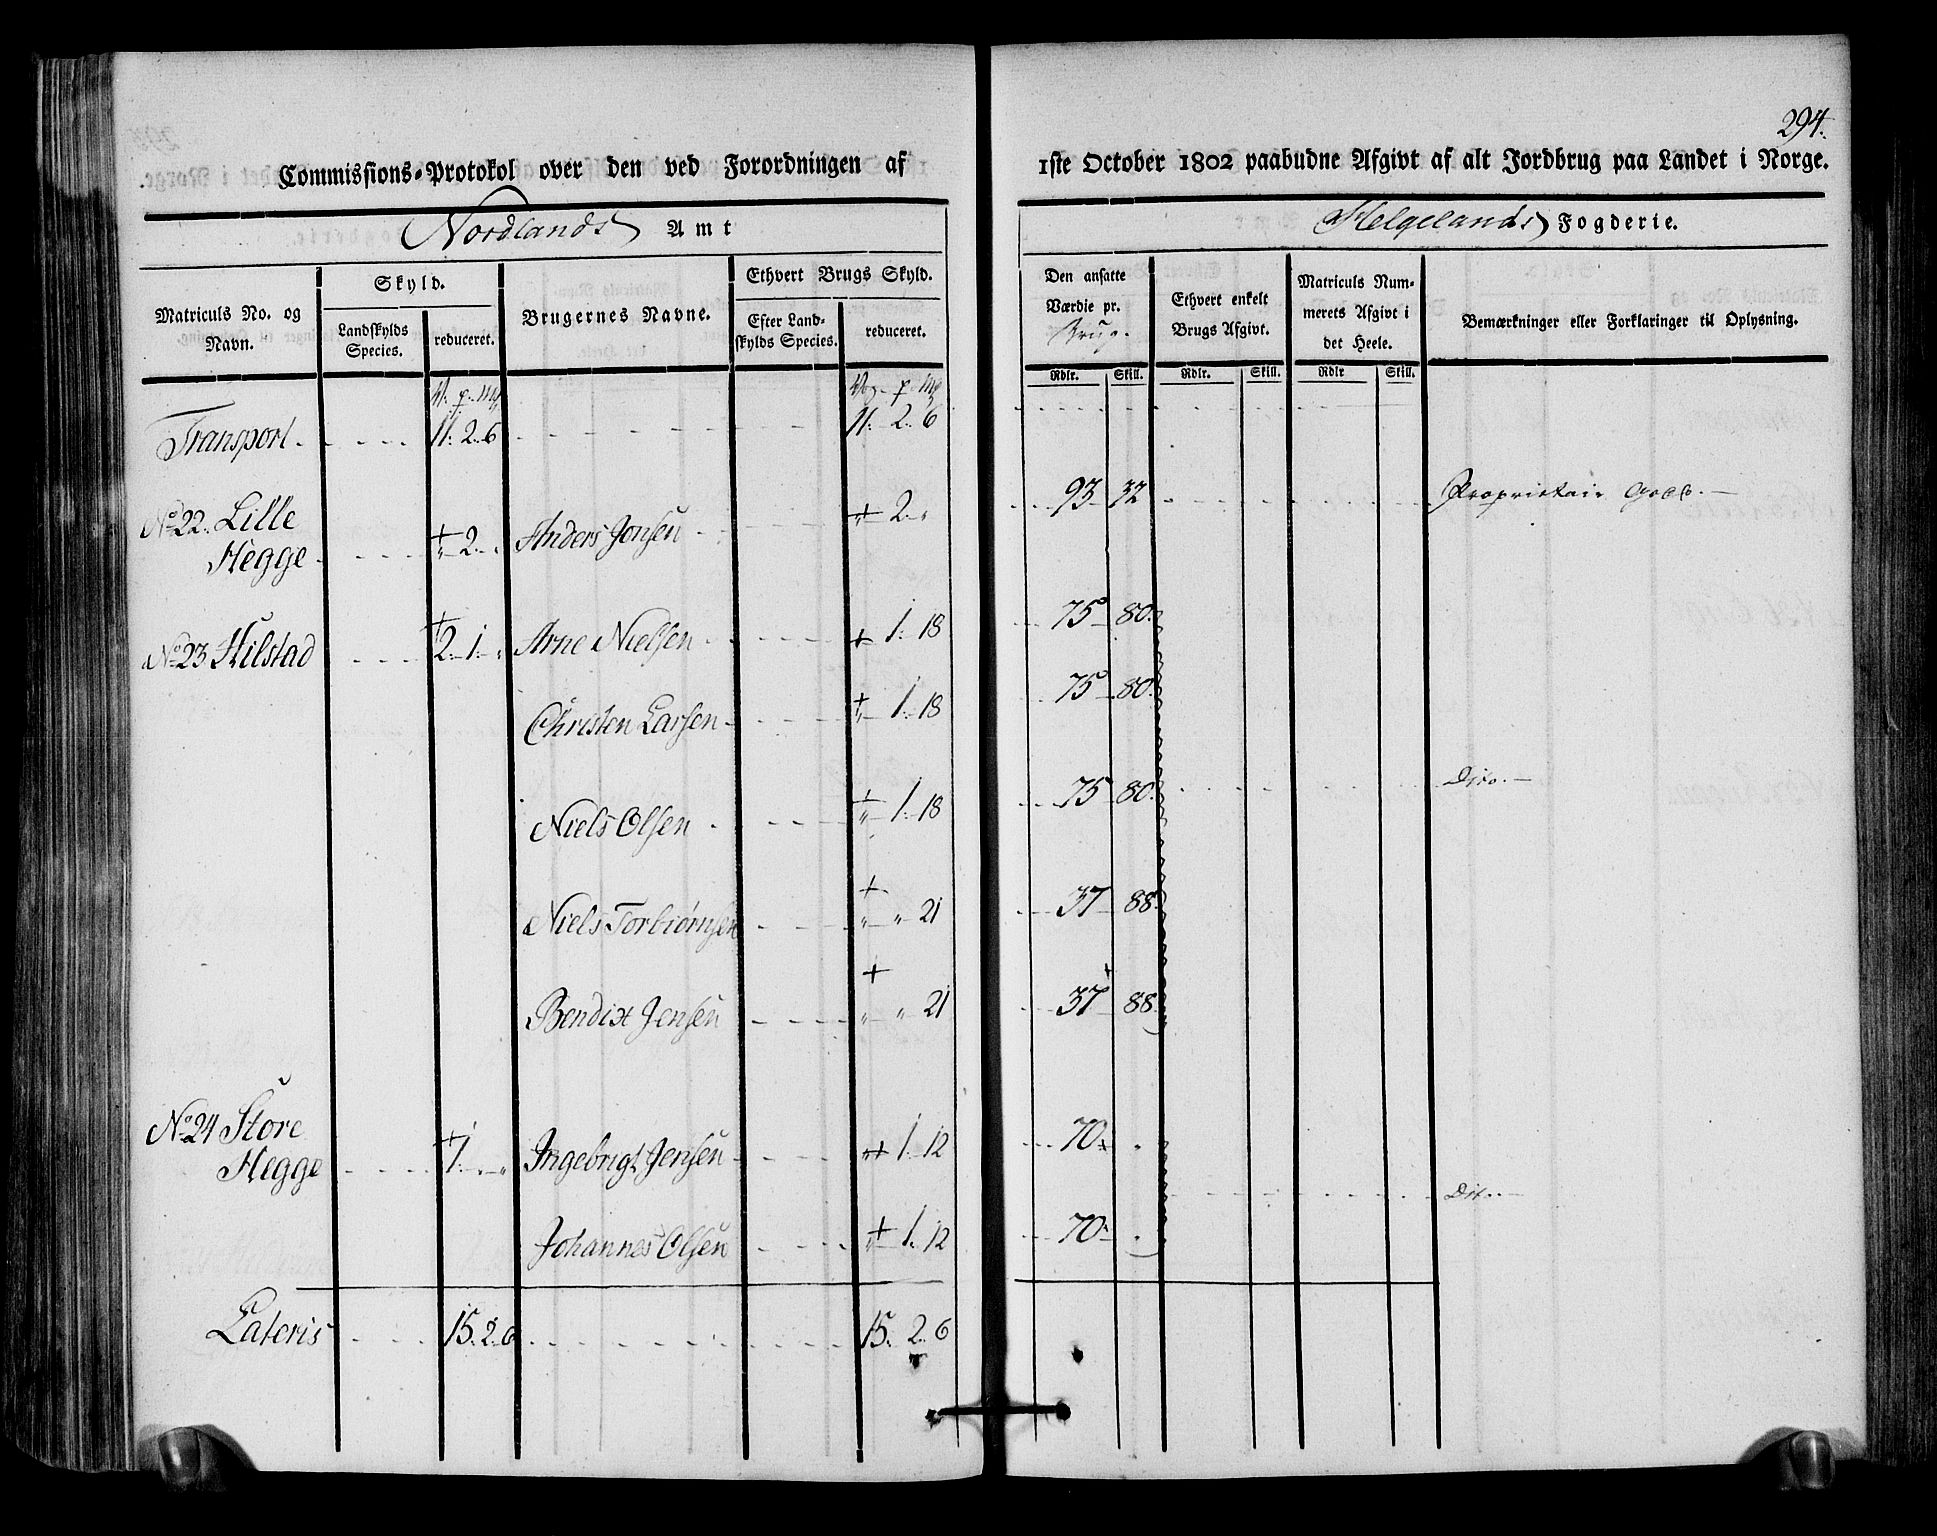 294.
Commissions-Protokol over den ved Forordningen af 1ste October 1802 paabudne Afgivt af alt Jordbrug paa Landet i Norge.
Nordlands Amt Helgelands Fogderie.
Matriculs No. og Navn. Skyld. Landskylds Species. reduceret. Brugernes Navne. Ethvert Brugs Skyld. Efter Landskylds Species. reduceret. Den ansatte Værdie pr. Brug. Ethvert enkelt Brugs Afgivt. Matriculs Nummerets Afgivt i det Heele. Bemærkninger eller Forklaringer til Oplysning.
Rdlr. Skill. Rdlr. Skill. Rdlr Skill.
V. p. mk Vog. p. mk
Transport 11. 2. 6 11. 2. 6
No 22. Lille
Hegge 2 Anders Jonsen 2 93 32 Proprietair
No 23 Hilstad 2. 1 Arne Nielsen 1. 18 75 80.
Christen Larsen 1. 18 75 80.
Niels Olsen 1. 18 75 80. Dito.
Niels Torbiørnsen 21 37 88.
Bendix Jensen 21 37 88
No 24 Store
Hegge 1. Ingebrigt Jensen 1. 12 70 Dit.
Johannes Olsen 1. 12 70
Lateris 15. 2. 6 15. 2. 6